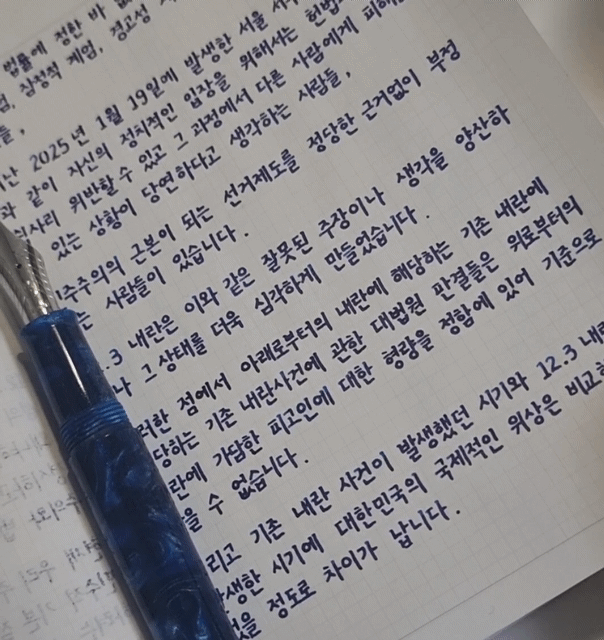 법률에 정한 바
잠정적 계엄, 경고성
2025년 1월 19일에 발생한 서울 서
같이 자신의 정치적인 입장을 위해서는 헌법
쉽사리 위반할 수 있고 그 과정에서 다른 사람에게 피해
있는 상황이 당연하다고 생각하는 사람들,
민주주의의 근본이 되는 선거제도를 정당한 근거없이 부정
는 사람들이 있습니다.
.3 내란은 이와 같은 잘못된 주장이나 생각을 양산하
나 그 상태를 더욱 심각하게 만들었습니다.
러한 점에서 아래로부터의 내란에 해당하는 기존 내란에
당하는 기존 내란사건에 관한 대법원 판결들은 위로부터의
란에 가담한 피고인에 대한 형량을 정함에 있어 기준으로
을 수 없습니다.
리고 기존 내란 사건이 발생했던 시기와 12.3 내란
발생한 시기에 대한민국의 국제적인 위상은 비교
없을 정도로 차이가 납니다.